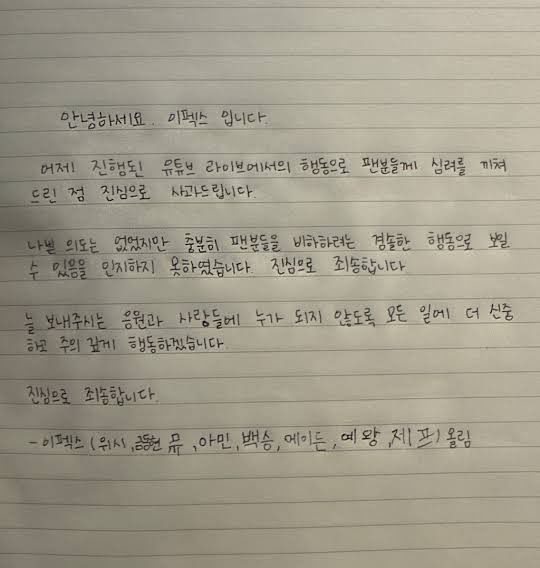 안녕하세요. 이펙스 입니다.
어제 진행된 유튜브 라이브에서의 행동으로 팬분들께 심려를 끼쳐
드린 점 진심으로 사과드립니다.
나쁠 의도는 없었지만 충분히 팬분들을 비하하려는 경솔한 행동으로 보일
수 있음을 인지하지 못하였습니다. 진심으로 죄송합니다
늘 보내주시는 응원과 사랑들에 누가 되지 않도록 모든 일에 더 신중
하고 주의 깊게 행동하겠습니다.
진심으로 죄송합니다.
- 이펙스 (위시, 금동현, 뮤, 아민, 백승, 에이든, 예왕, 제프) 올림